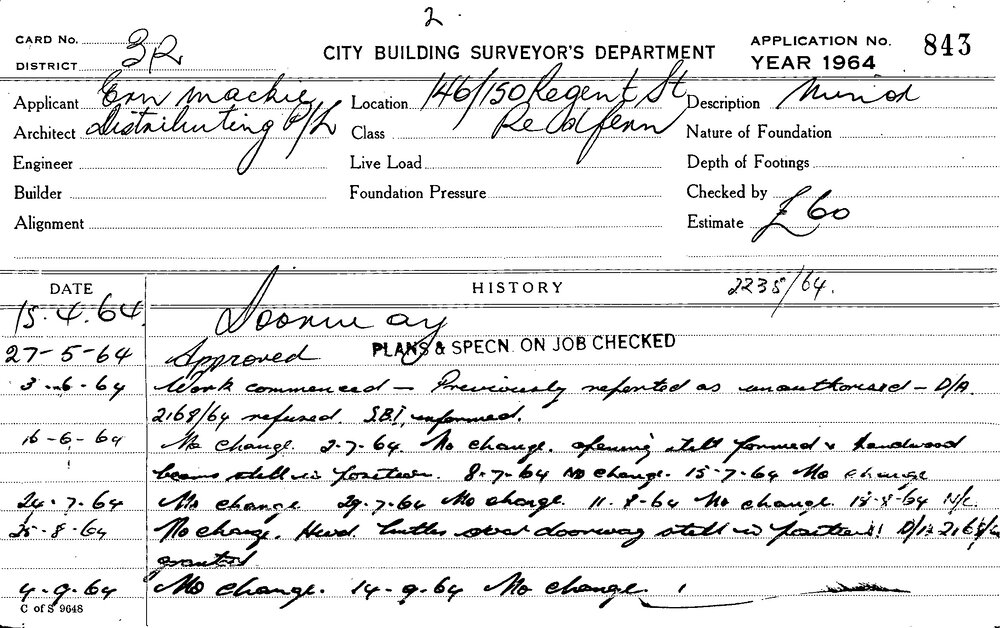 2.
CARD No. 3R
DISTRICT
CITY BUILDING SURVEYOR'S DEPARTMENT
APPLICATION No. 843
YEAR 1964
Applicant Ern Mackie Location 146/150 Regent St Description Minor
Architect Distributing P/L Class Redfern Nature of Foundation
Engineer Live Load Depth of Footings
Builder Foundation Pressure Checked by
Alignment Estimate £60
DATE HISTORY 2235/64.
15.4.64. Doorway
27-5-64 Approved PLANS & SPECN. ON JOB CHECKED
3-6-64 Work commenced - Previously reported as unauthorised - D/A
2168/64 refused. S.B.I. informed.
16-6-64 No change. 2-7-64. No change. opening still formed & hardwood
beams still in position. 8-7-64 No change. 15-7-64 No change
24-7-64 No change 29-7-64 No change. 11-8-64 No change. 18-8-64 N/C.
25-8-64 No change. Hwd. lintles over doorway still in position! D/A 2168/64
granted
4-9-64 No change. 14-9-64 No change.
C of S 9648